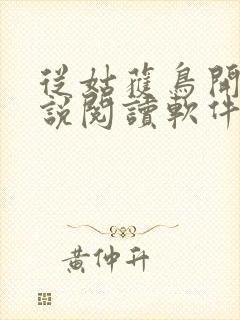 從姑獲鳥開
說閱讀軟件
黃仲升